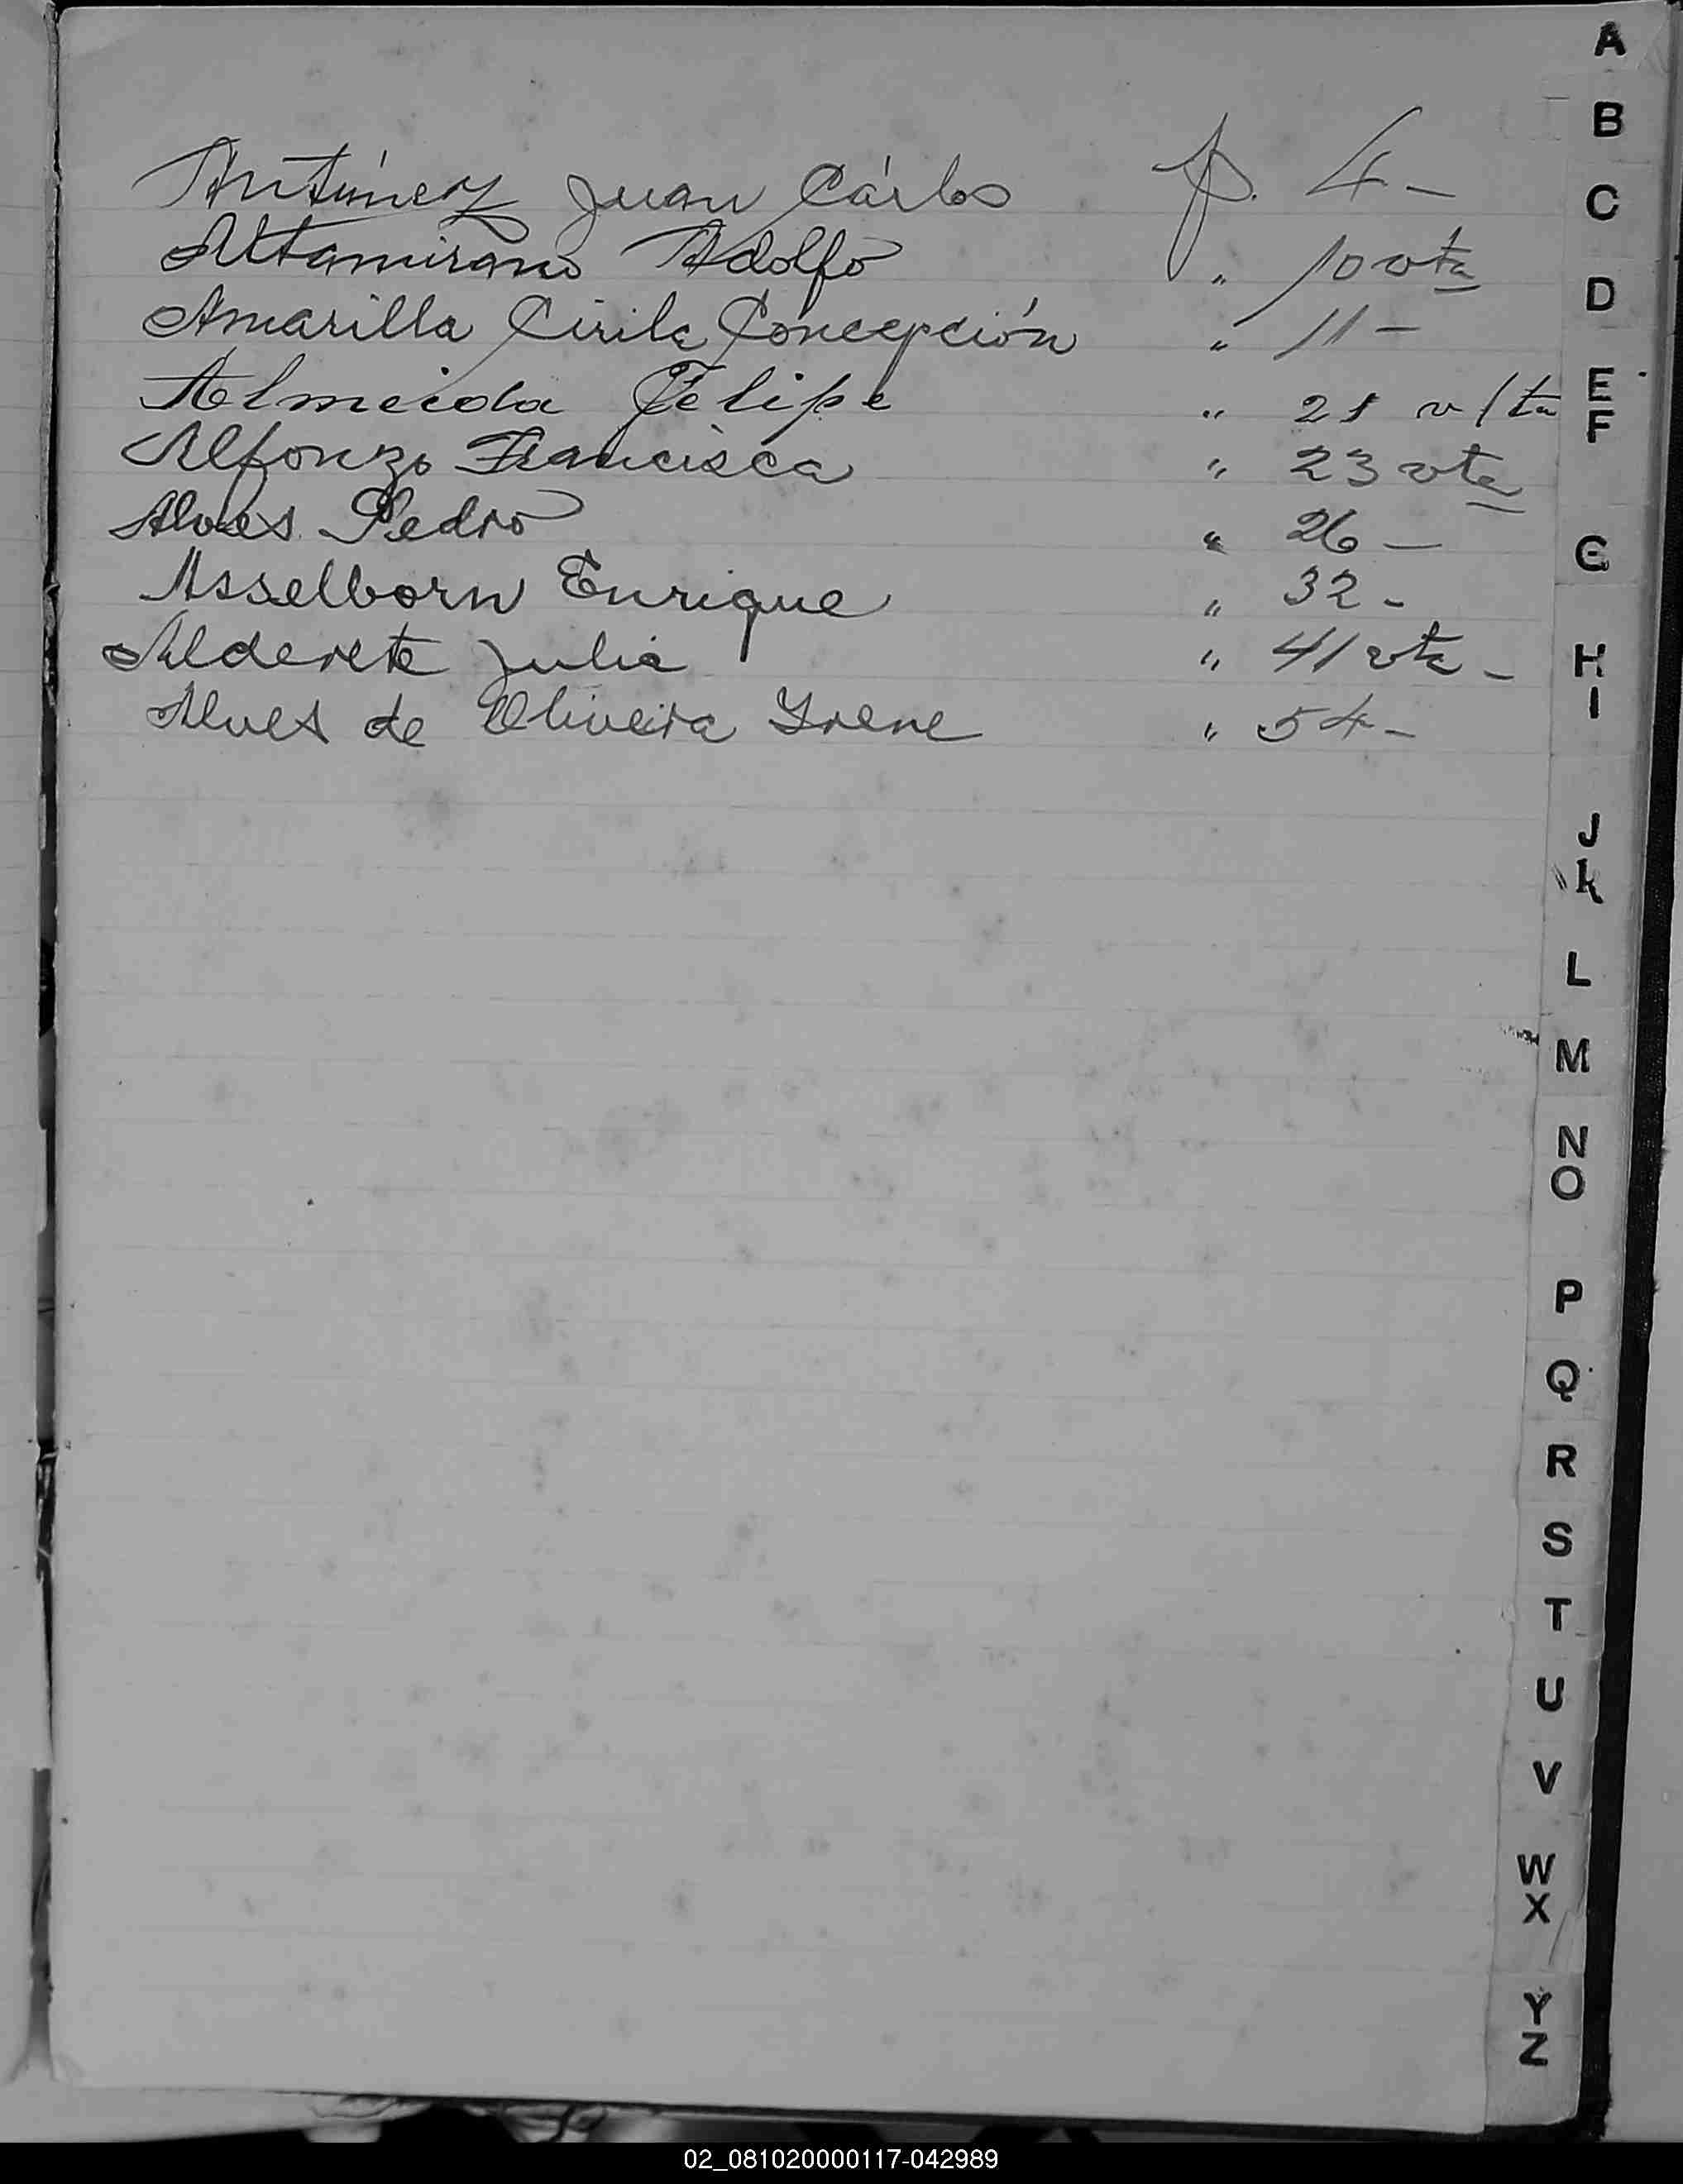 Antúnez Juan Cárlos p. 4 -
Altamirano Adolfo " 10 vta
Amarilla Cirila Concepción " 11 -
Almeida Felipe " 21 v/ta
Alfonzo Francisca " 23 vta
Alves Pedro " 26 -
Asselborn Enrique " 32 -
Alderete Julia " 41 vta -
Alves de Oliveira Irene " 54 -
A
B
C
D
E
F
G
H
I
J
k
L
M
N
O
P
Q
R
S
T
U
V
W
X
Y
Z
02_081020000117-042989